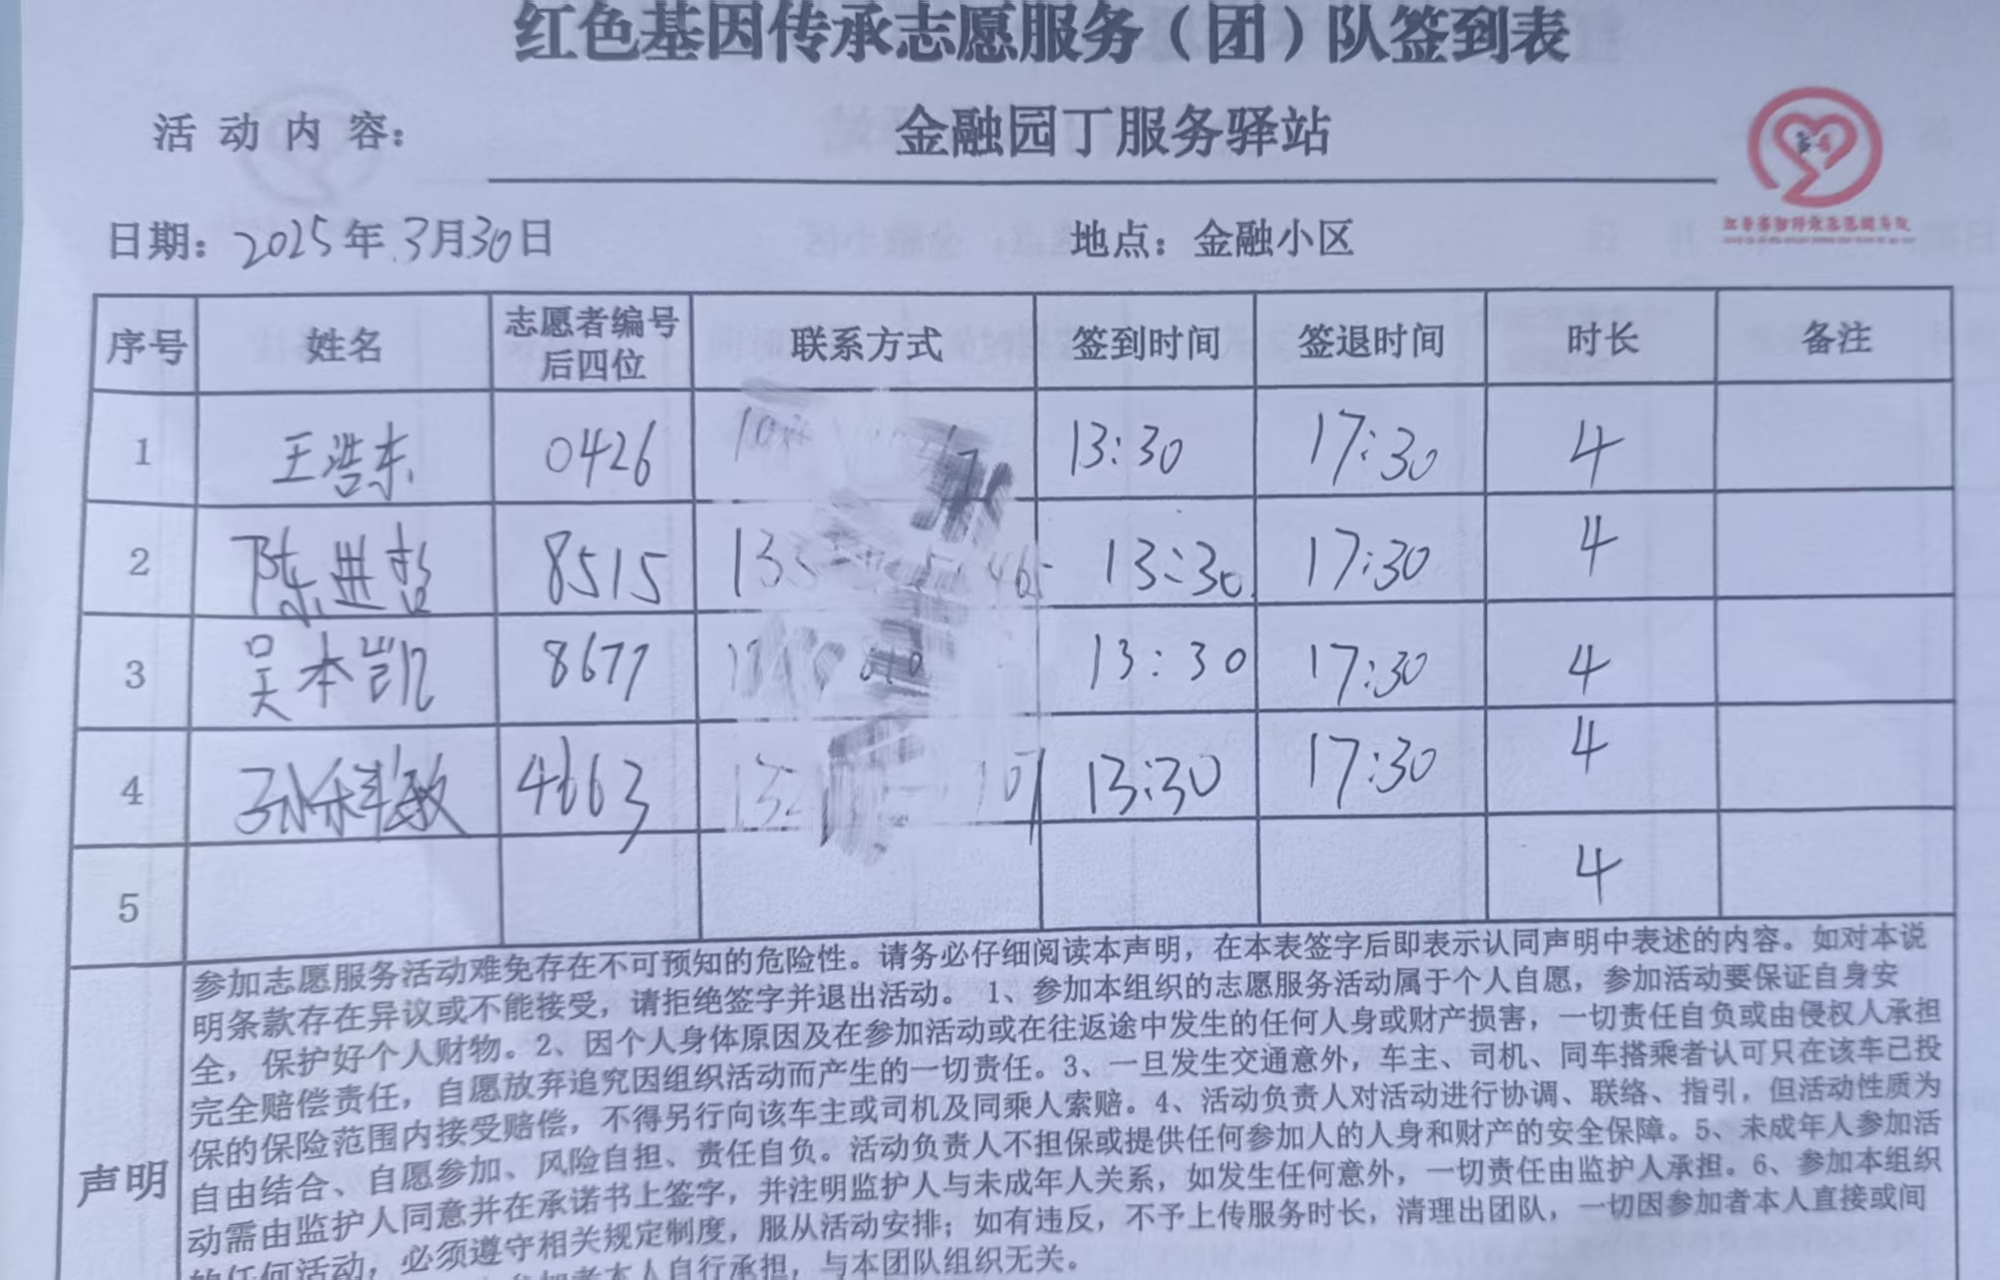 红色基因传承志愿服务（团）队签到表
活动内容： 金融园丁服务驿站
日期：2025年3月30日 地点：金融小区
序号 姓名 志愿者编号后四位 联系方式 签到时间 签退时间 时长 备注
1 王浩东 0426 13:30 17:30 4
2 陈进喆 8515 13:30 17:30 4
3 吴本凯 8677 13:30 17:30 4
4 孙科敏 4663 13:30 17:30 4
5 4
声明
参加志愿服务活动难免存在不可预知的危险性。请务必仔细阅读本声明，在本表签字后即表示认同声明中表述的内容。如对本说
明条款存在异议或不能接受，请拒绝签字并退出活动。 1、参加本组织的志愿服务活动属于个人自愿，参加活动要保证自身安
全，保护好个人财物。2、因个人身体原因及在参加活动或在往返途中发生的任何人身或财产损害，一切责任自负或由侵权人承担
完全赔偿责任，自愿放弃追究因组织活动而产生的一切责任。3、一旦发生交通意外，车主、司机、同车搭乘者认可只在该车已投
保的保险范围内接受赔偿，不得另行向该车主或司机及同乘人索赔。4、活动负责人对活动进行协调、联络、指引，但活动性质为
自由结合、自愿参加、风险自担、责任自负。活动负责人不担保或提供任何参加人的人身和财产的安全保障。5、未成年人参加活
动需由监护人同意并在承诺书上签字，并注明监护人与未成年人关系，如发生任何意外，一切责任由监护人承担。6、参加本组织
的任何活动，必须遵守相关规定制度，服从活动安排；如有违反，不予上传服务时长，清理出团队，一切因参加者本人直接或间
参加者本人自行承担，与本团队组织无关。